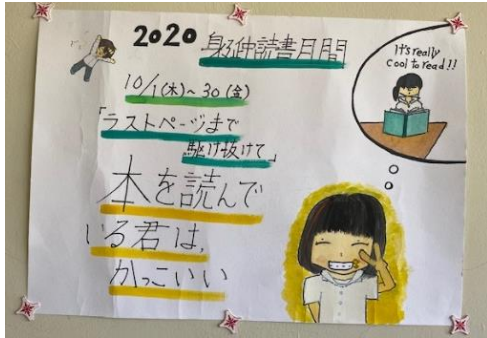 2020 身延中読書月間
10/1(木)~30(金)
「ラストページまで
駆け抜けて」
本を読んで
いる君は、
かっこいい
It's really
cool to read!!